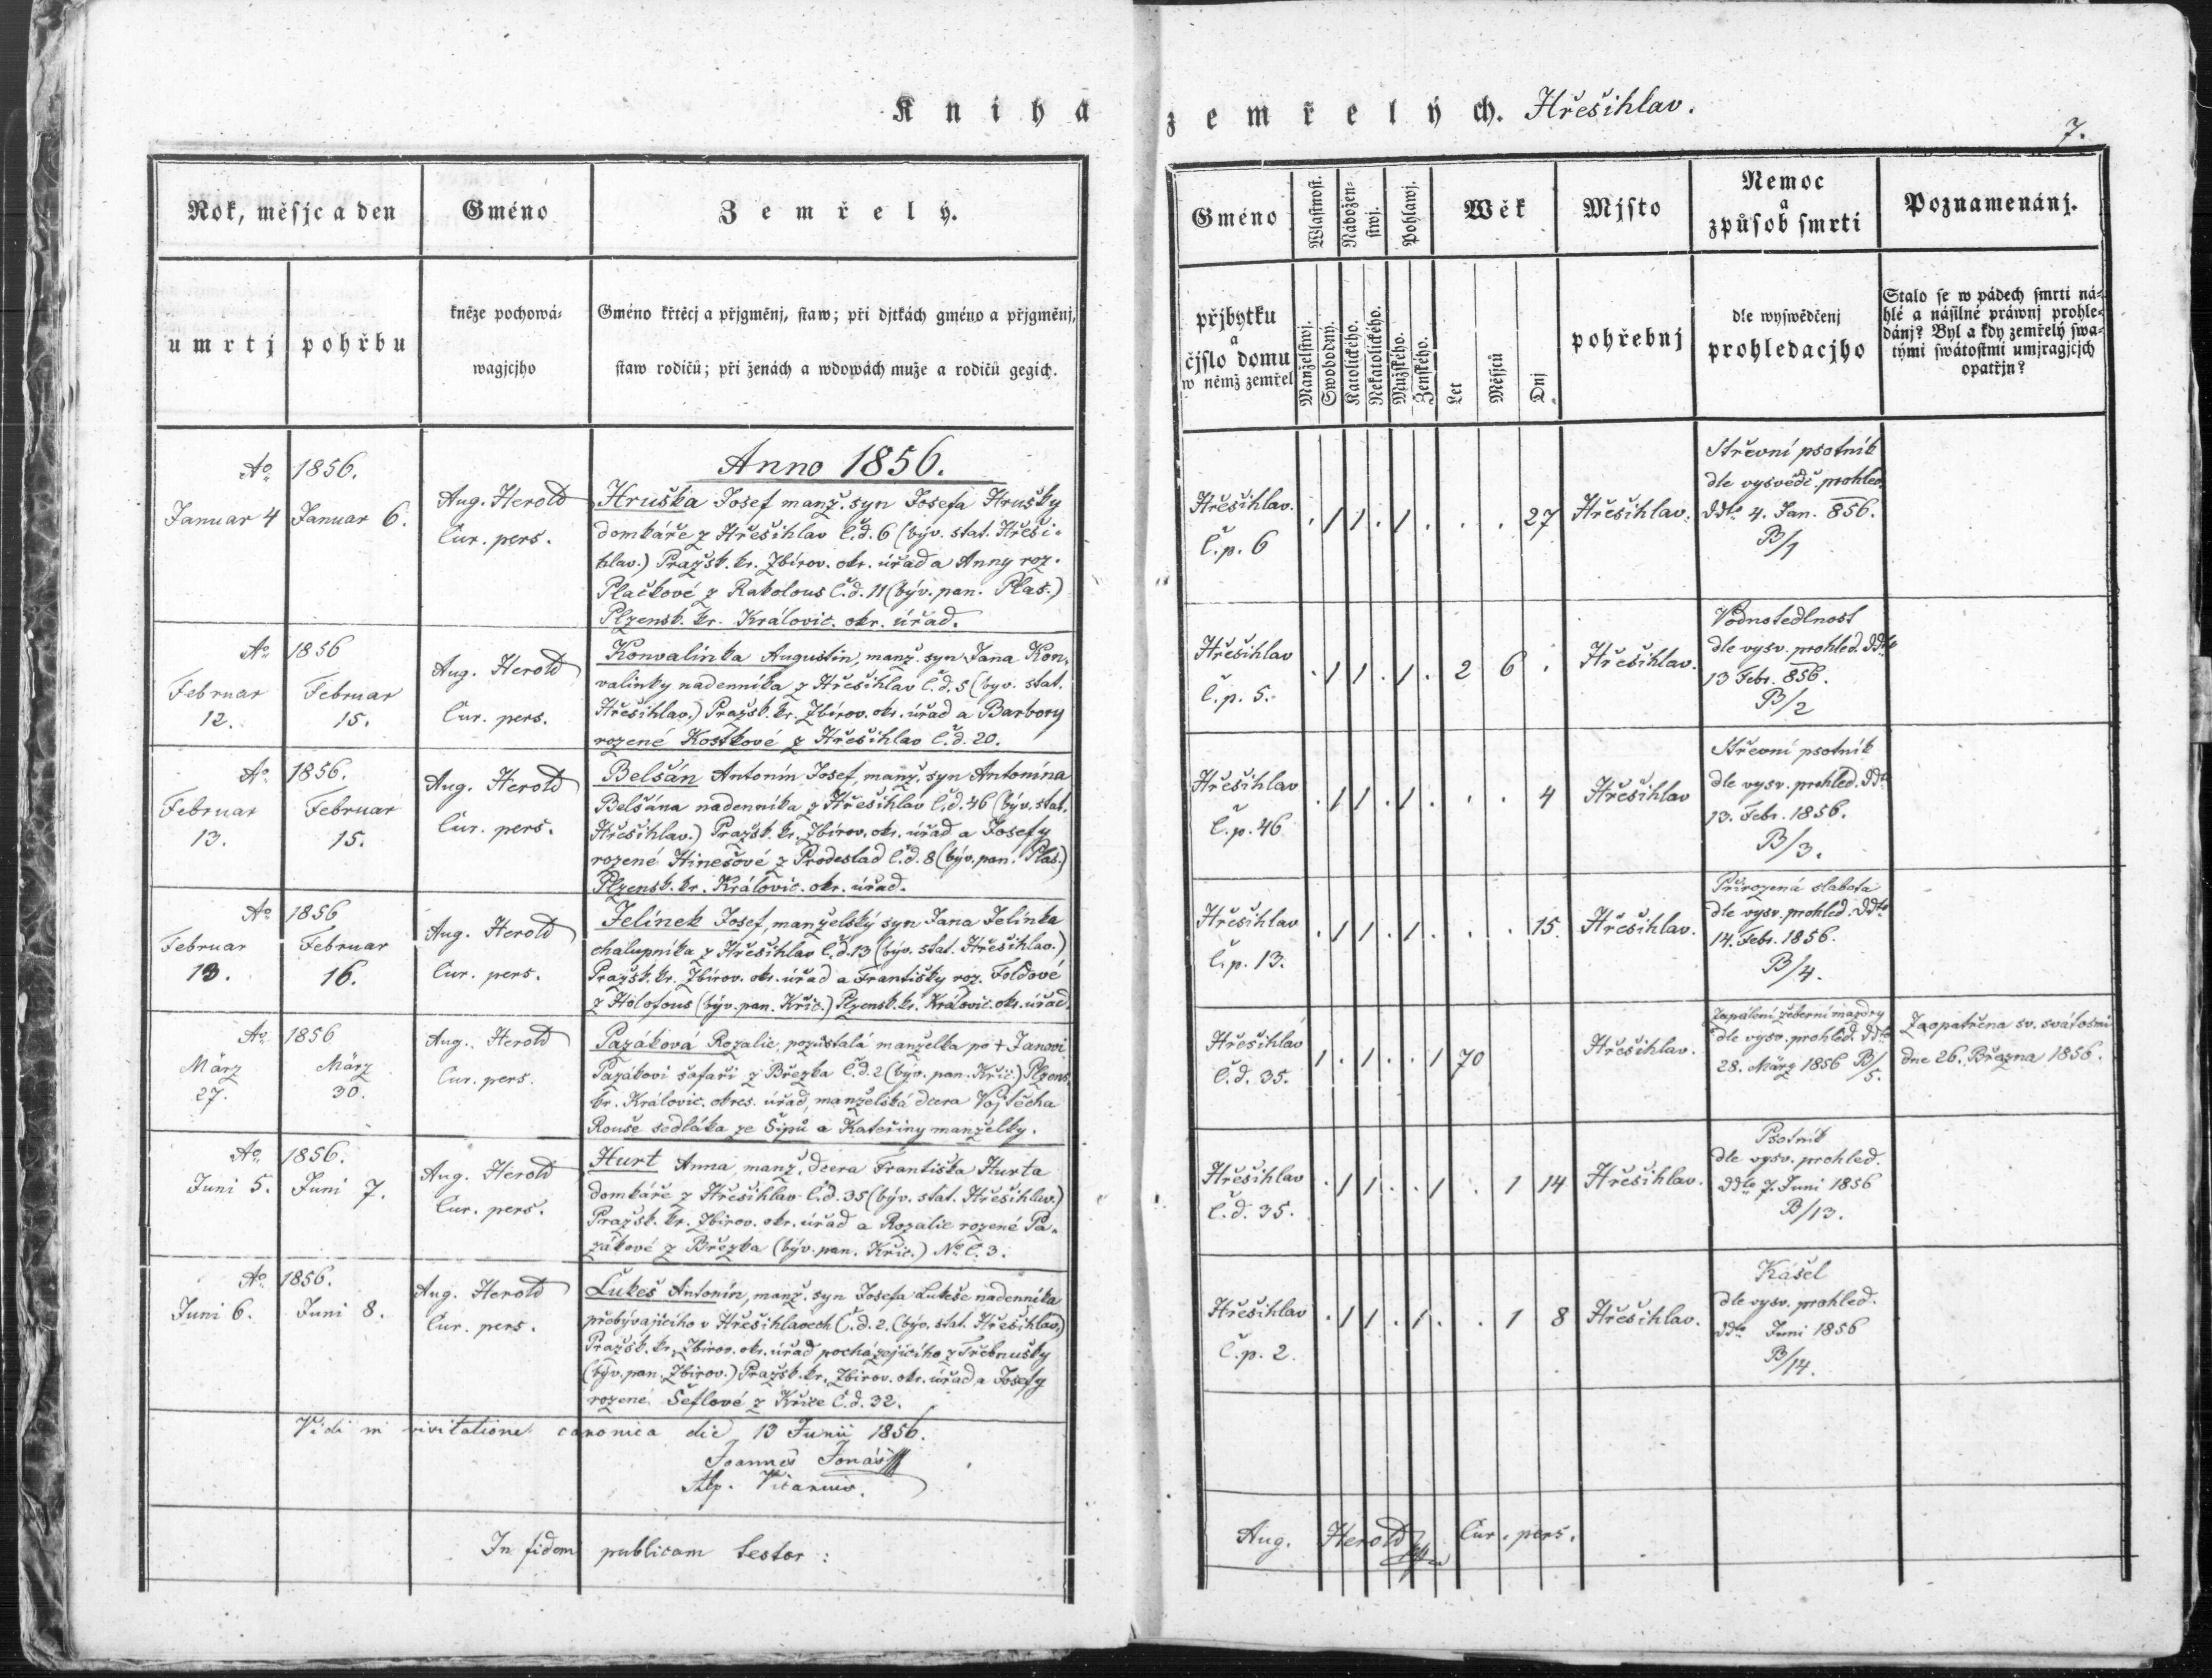 Kniha zemřelých. Hřešihlav.
7.
Rok, měsjc a den
Gméno
Zemřelý.
umrtj
pohřbu
kněze pochowá-
wagjcjho
Gméno křtěcj a přjgměnj, staw; při djtkách gméno a přjgměnj,
staw rodičů; při ženách a wdowách muže a rodičů gegich.
Gméno
přjbytku
a
čjslo domu
w němž zemřel
Wlastnost.
Manželstwj.
Swobodný.
Nábožen-
stwj.
Katolického.
Nekatolického.
Pohlawj.
Mužského.
Ženského.
Wěk
Let
Měsjců
Dnj
Mjsto
pohřebnj
Nemoc
a
způsob smrti
dle wyswědčenj
prohledacjho
Poznamenánj.
Stalo se w pádech smrti ná-
hlé a násilné práwnj prohle-
dánj? Byl a kdy zemřelý swa-
tými swátostmi umjragjcjch
opatřjn?
Anno 1856.
Ao 1856.
Januar 4 Januar 6.
Aug. Herold
Cur. pers.
Hruška Josef manž. syn Josefa Hrušky
domkáře z Hřešihlav č.d. 6 (býv. stat. Hřeši-
hlav.) Pražsk. kr. Zbirov. okr. úřad a Anny roz.
Plačkové z Rakolous č.d. 11 (býv. pan. Plas.)
Plzensk. kr. Královic. okr. úřad.
Hřešihlav.
č.p. 6
. 1 1 . 1 . . . 27
Hřešihlav.
Střevní psotník
dle vysvědč. prohled.
ddto 4. Jan. 856.
B/1
Ao 1856
Februar 12. Februar 15.
Aug. Herold
Cur. pers.
Konvalinka Augustin, manž. syn Jana Kon-
valinky nadenníka z Hřešihlav č.d. 5 (byv. stat.
Hřešihlav.) Pražsk. kr. Zbirov. okr. úřad a Barbory
rozené Kostkové z Hřešihlav č.d. 20.
Hřešihlav
č.p. 5.
. 1 1 . 1 . 2 6 .
Hřešihlav.
Vodnotedlnost
dle vysv. prohled. ddto
13 Febr. 856.
B/2
Ao 1856.
Februar 13. Februar 15.
Aug. Herold
Cur. pers.
Belšán Antonín Josef, manž. syn Antonína
Belšána nadenníka z Hřešihlav č.d. 46 (býv. stat.
Hřešihlav.) Pražsk. kr. Zbirov. okr. úřad a Josefy
rozené Hinešové z Prodeslad č.d. 8 (býv. pan. Plas.)
Plzensk. kr. Královic. okr. úřad.
Hřešihlav
č.p. 46
. 1 1 . 1 . . . 4
Hřešihlav
Střevní psotník
dle vysv. prohled. ddto
13. Febr. 1856.
B/3.
Ao 1856
Februar 13. Februar 16.
Aug. Herold
Cur. pers.
Jelínek Josef, manželský syn Jana Jelínka
chalupníka z Hřešihlav č.d. 13 (býv. stat. Hřešihlav.)
Pražsk. kr. Zbirov. okr. úřad a Františky roz. Foldové
z Holofous (býv. pan. Křic.) Plzensk. kr. Královic. okr. úřad.
Hřešihlav
č.p. 13.
. 1 1 . 1 . . . 15.
Hřešihlav.
Přirozená slabota
dle vysv. prohled. ddto
14. Febr. 1856.
B/4.
Ao 1856
März 27. März 30.
Aug. Herold
Cur. pers.
Pazáková Rozalie, pozůstalá manželka po + Janovi
Pazákovi šafáři z Březka č.d. 2 (býv. pan. Křic.) Plzens.
kr. Královic. okres. úřad, manželská dcera Vojtěcha
Rouše sedláka ze Šipů a Kateřiny manželky.
Hřešihlav
č.d. 35.
1 . 1 . . 1 70
Hřešihlav.
Zapálení žeberní mázdry
dle vysv. prohled. ddto
28. März 1856 B/5.
Zaopatřena sv. svátostmi
dne 26. Března 1856.
Ao 1856.
Juni 5. Juni 7.
Aug. Herold
Cur. pers.
Hurt Anna, manž. dcera Františka Hurta
domkáře z Hřešihlav č.d. 35 (býv. stat. Hřešihlav.)
Pražsk. kr. Zbirov. okr. úřad a Rozalie rozené Pa-
zákové z Březka (býv. pan. Křic.) No. č. 3.
Hřešihlav
č.d. 35.
. 1 1 . . 1 . 1 14
Hřešihlav.
Psotník
dle vysv. prohled.
ddto 7. Juni 1856
B/13.
Ao 1856.
Juni 6. Juni 8.
Aug. Herold
Cur. pers.
Lukeš Antonín, manž. syn Josefa Lukeše nadenníka
přebývajícího v Hřešihlavech č.d. 2. (býv. stat. Hřešihlav.)
Pražsk. kr. Zbirov. okr. úřad pocházejícího z Třebnušky
(býv. pan. Zbirov.) Pražsk. kr. Zbirov. okr. úřad a Josefy
rozené Šeflové z Křice č.d. 32.
Hřešihlav
č.p. 2.
. 1 1 . 1 . . 1 8
Hřešihlav.
Kašel
dle vysv. prohled.
ddto Juni 1856
B/14.
Vidi in visitatione canonica die 13 Junii 1856.
Joannes Jonáš
Vicarius.
In fidem publicam testor: Aug. Herold Cur. pers.